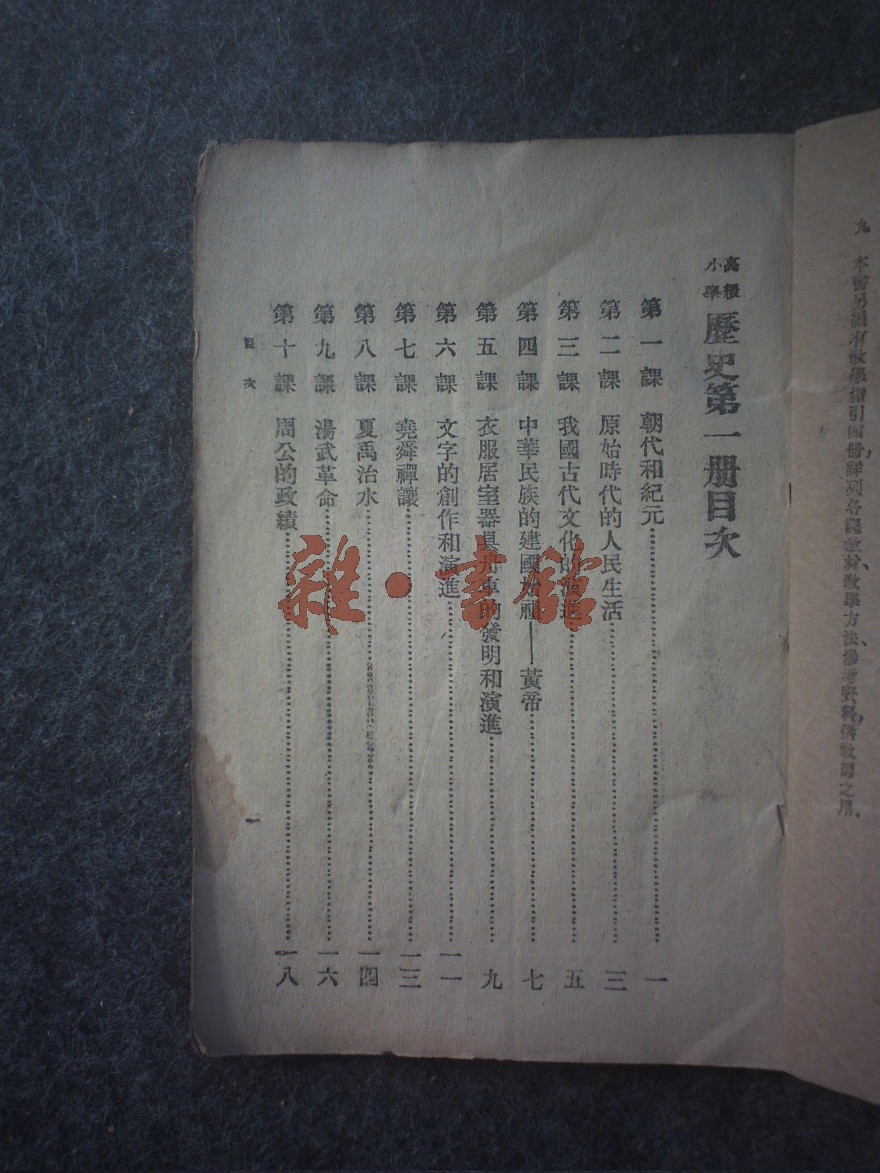 九 本書另編有教學指引四冊詳列各課教材、教學方法、參考資料、供教師之用。
高級小學 歷史第一册目次
第一課 朝代和紀元 一
第二課 原始時代的人民生活 三
第三課 我國古代文化的演進 五
第四課 中華民族的建國始祖——黃帝 七
第五課 衣服居室器具舟車的發明和演進 九
第六課 文字的創作和演進 一一
第七課 堯舜禪讓 一三
第八課 夏禹治水 一四
第九課 湯武革命 一六
第十課 周公的政績 一八
目次 一
雜·書館